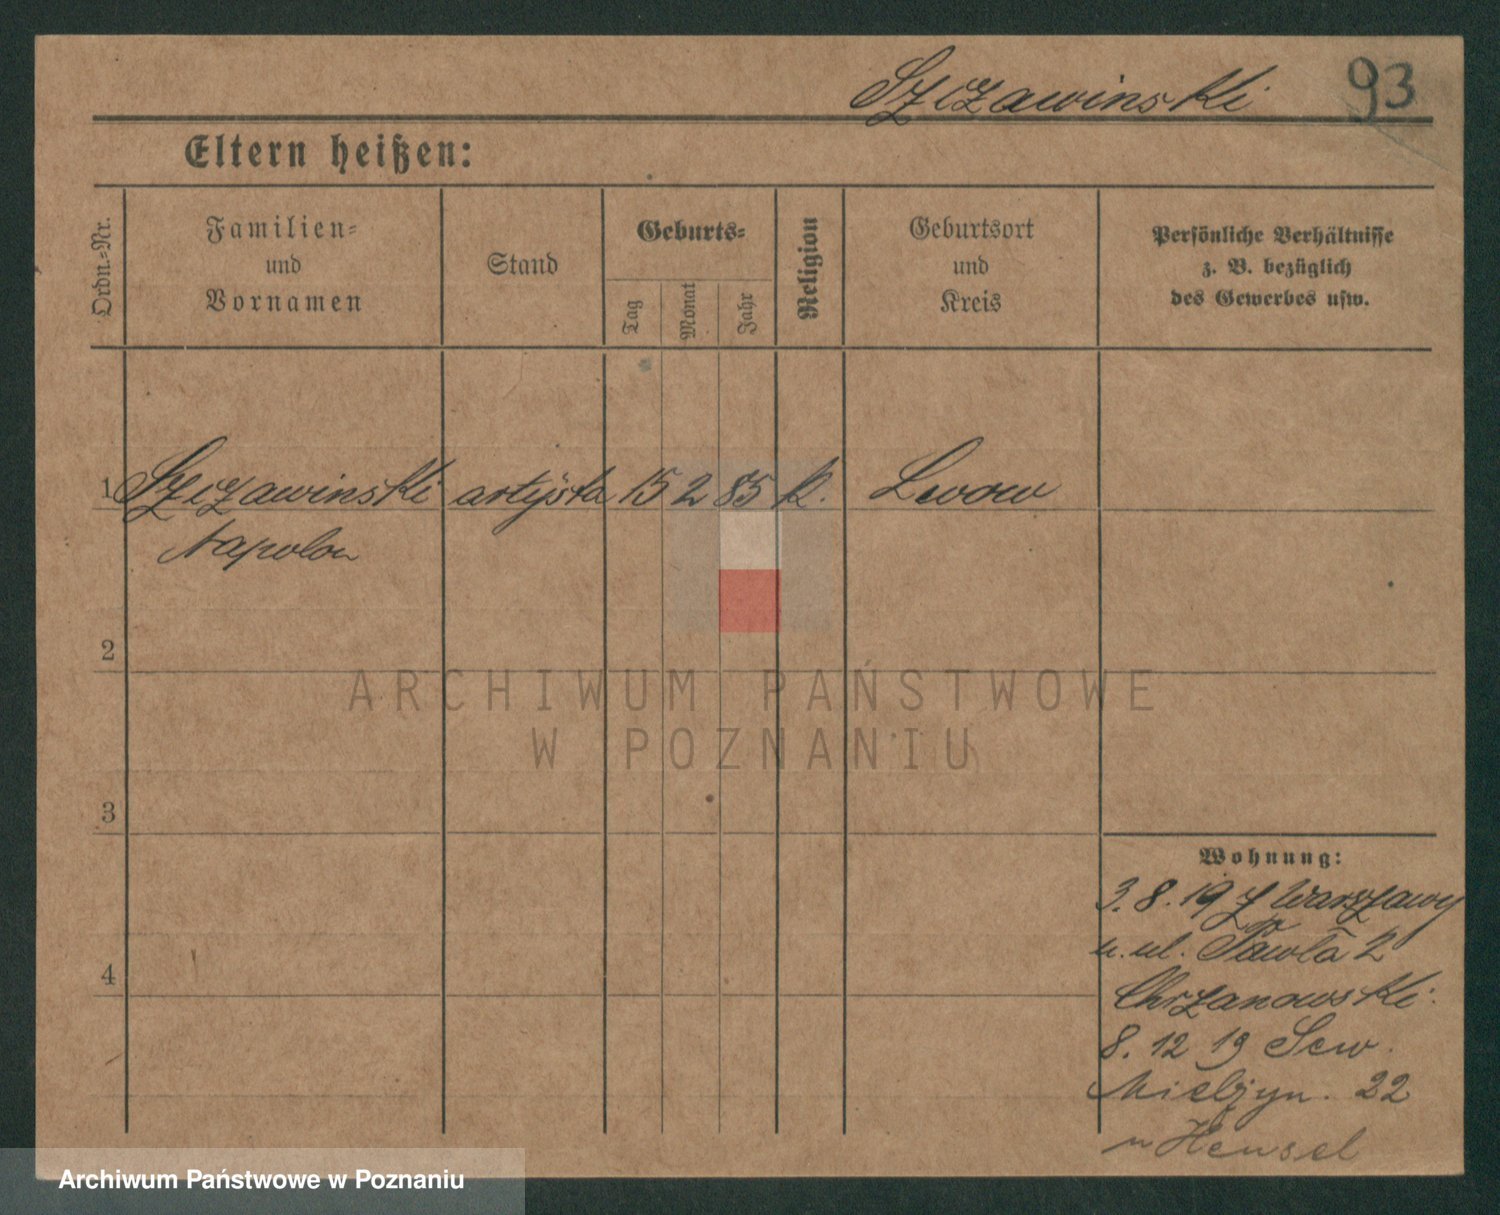 Szczawinski 93
Eltern heißen:
Ordn.-Nr.
Familien-
und
Vornamen
Stand
Geburts-
Tag
Monat
Jahr
Religion
Geburtsort
und
Kreis
Persönliche Verhältnisse
z. B. bezüglich
des Gewerbes usw.
1 Szczawinski artysta 15 2 85 k. Lwow
Napoleon
2
ARCHIWUM PAŃSTWOWE
W POZNANIU
3
Wohnung:
3. 8. 19 z Warszawy
ul. Pawła 2
Chrzanowski
4
8. 12 19 Sew.
Mielżyn. 22
Hensel
Archiwum Państwowe w Poznaniu